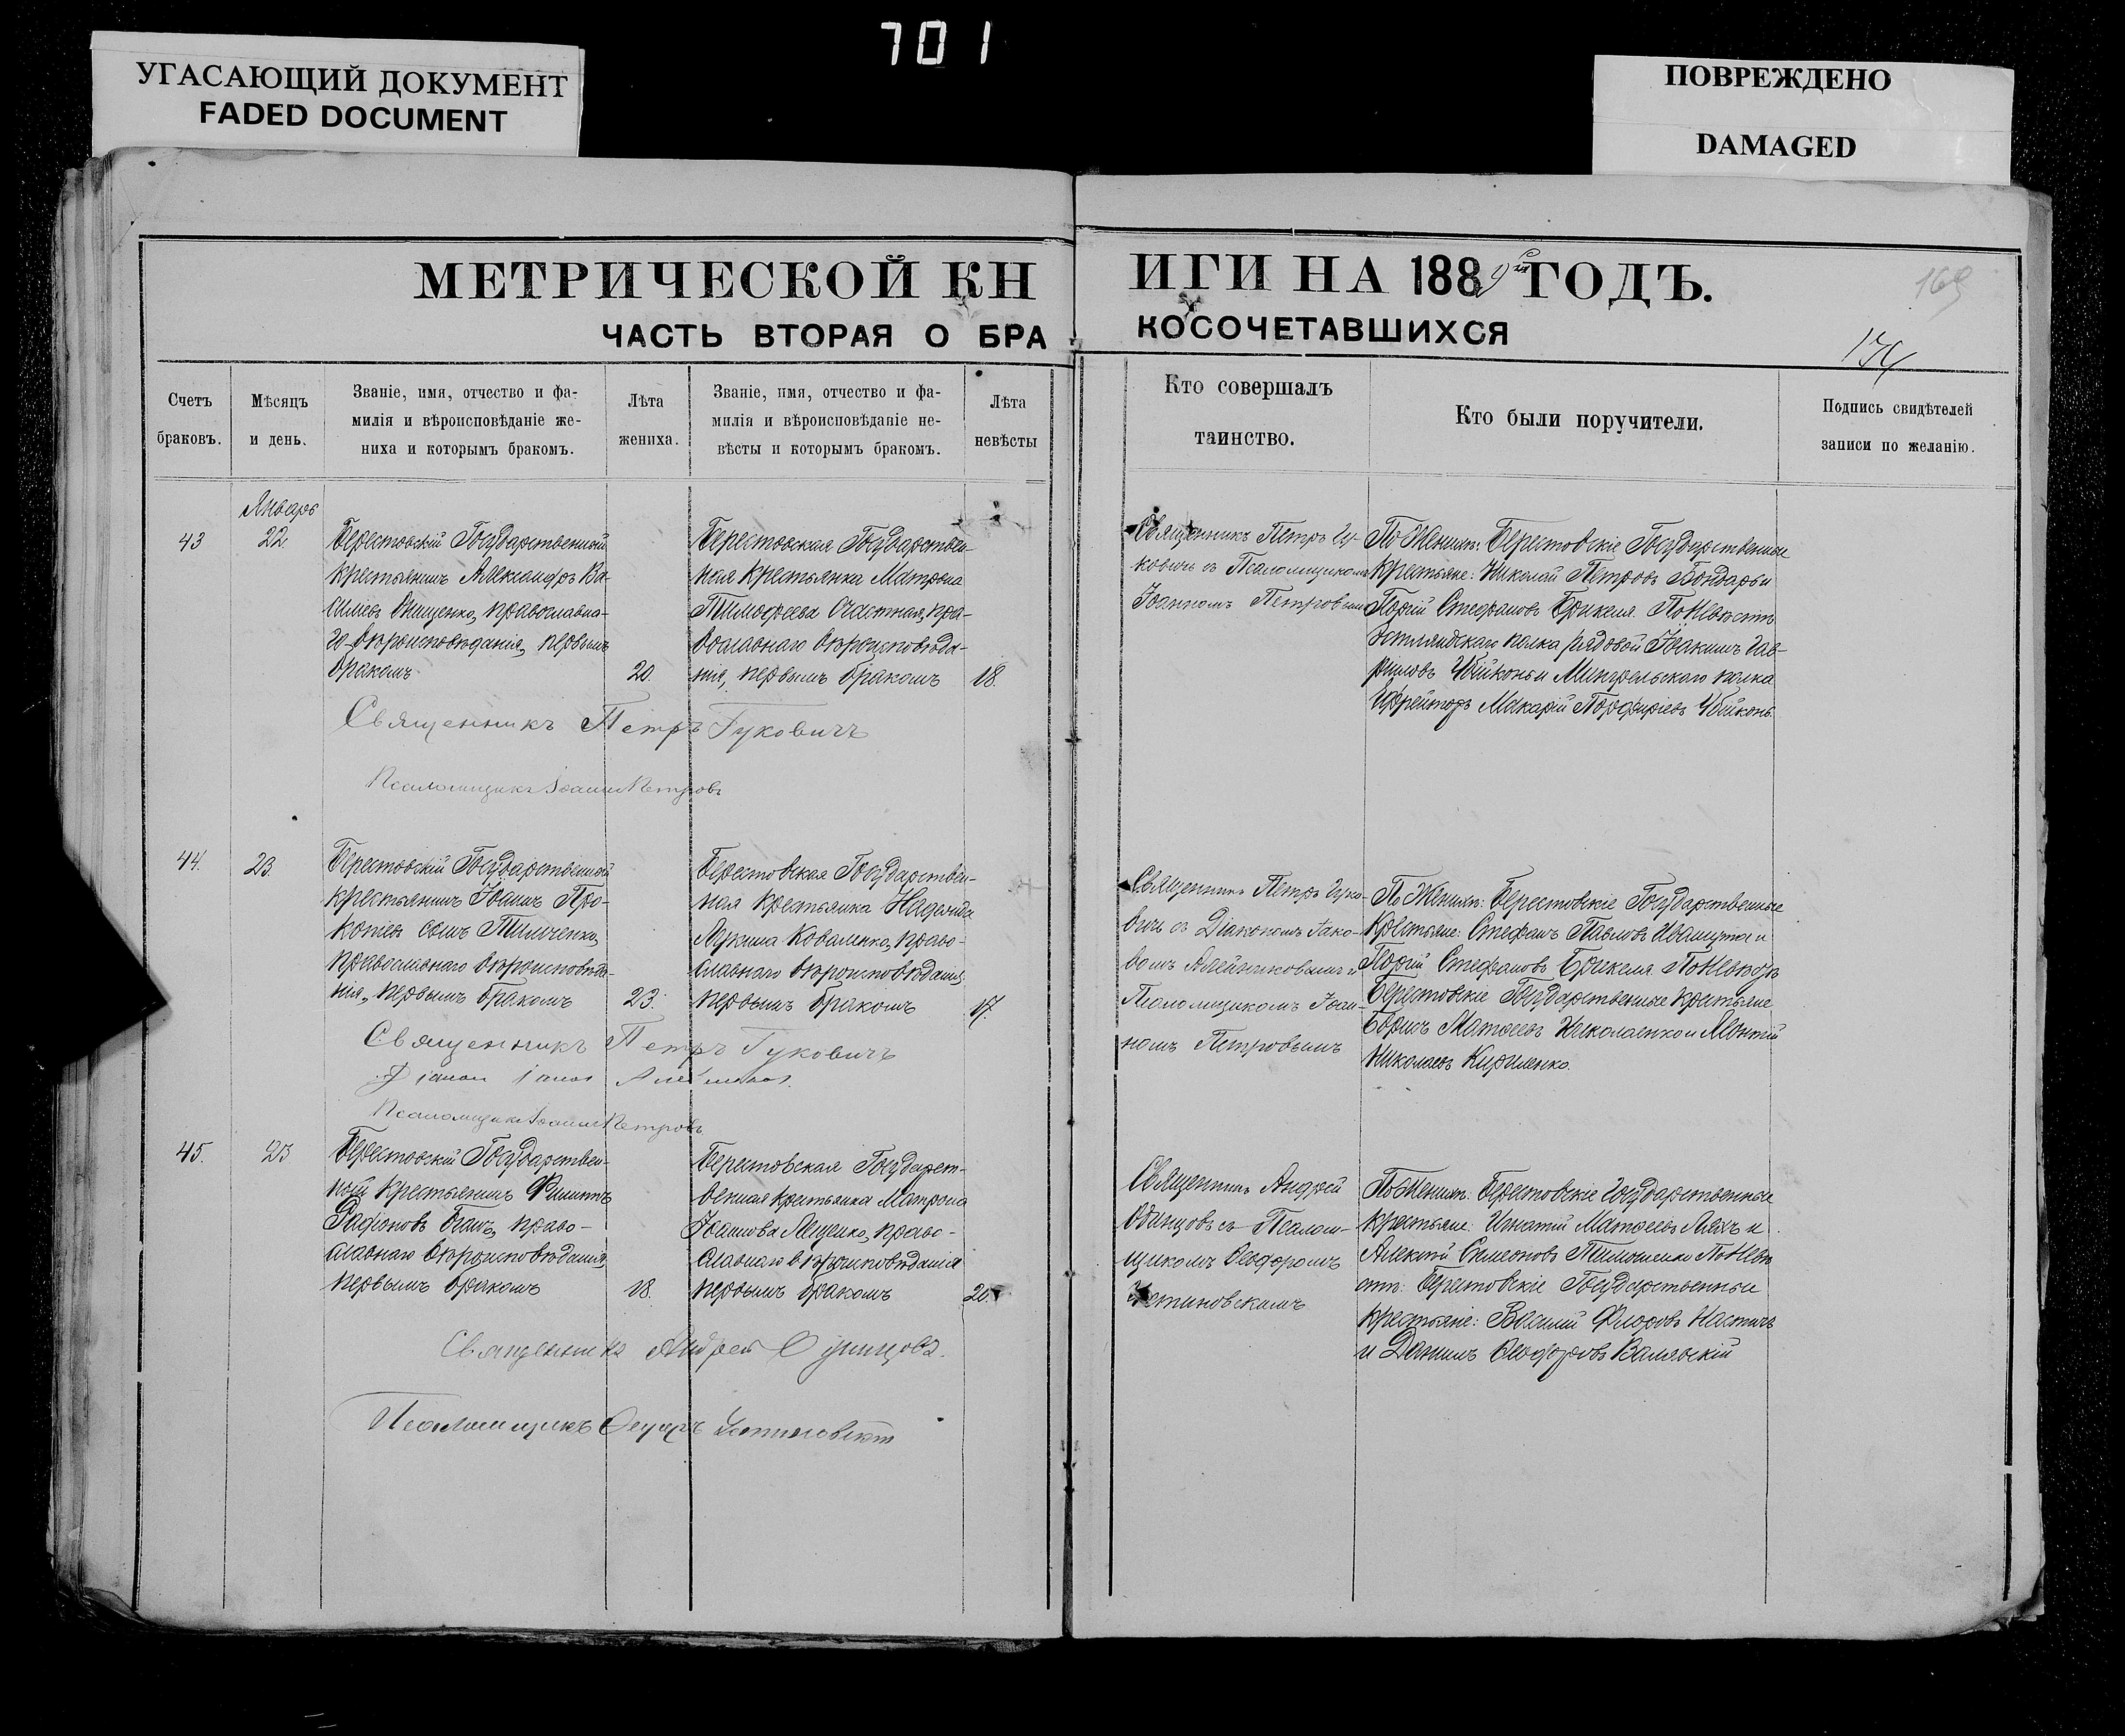 701
УГАСАЮЩИЙ ДОКУМЕНТ
FADED DOCUMENT
ПОВРЕЖДЕНО
DAMAGED
МЕТРИЧЕСКОЙ КН
ИГИ НА 1889 ГОДЪ.
ЧАСТЬ ВТОРАЯ О БРА
КОСОЧЕТАВШИХСЯ
169
Счетъ
браковъ.
Мѣсяцъ
и день.
Званіе, имя, отчество и фа-
милія и вѣроисповѣданіе же-
ниха и которымъ бракомъ.
Лѣта
жениха.
Званіе, имя, отчество и фа-
милія и вѣроисповѣданіе не-
вѣсты и которымъ бракомъ.
Лѣта
невѣсты
Кто совершалъ
таинство.
Кто были поручители.
Подпись свидѣтелей
записи по желанію.
43
Январь
22.
Берестовскій Государственный
крестьянинъ Александръ Ва-
силіевъ Онищенко, православна-
го вѣроисповѣданія, первымъ
бракомъ
20.
Берестовская Государствен-
ная крестьянка Матрона
Тимофеева Счастная, пра-
вославнаго вѣроисповѣда-
нія, первымъ бракомъ
18.
Священникъ Петръ Гу-
ковичъ съ Псаломщикомъ
Іоанномъ Петровымъ
По Женихѣ: Берестовскіе Государственные
крестьяне: Николай Петровъ Бондарь и
Стефановъ Брикеля. По Невѣстѣ
полка рядовой Іоакимъ Гав-
риловъ Убійконь и Мингрельскаго полка
Ефрейторъ Макарій Порфиріевъ Убійконь.
Священникъ Петръ Гуковичъ
Псаломщикъ Іоаннъ Петровъ
44.
23.
Берестовскій Государственный
крестьянинъ Іоаннъ Про-
копіевъ сынъ Тимченко,
православнаго вѣроисповѣда-
нія, первымъ бракомъ
23.
Берестовская Государствен-
ная крестьянка Надежда
Лукина Коваленко, право-
славнаго вѣроисповѣданія,
первымъ бракомъ
17.
Священникъ Петръ Гуко-
вичъ съ Діакономъ Іако-
вомъ Алейниковымъ и
Псаломщикомъ Іоан-
номъ Петровымъ
По Женихѣ: Берестовскіе Государственные
крестьяне: Стефанъ Павловъ Иващута и
Стефановъ Брикеля По Невѣстѣ
Берестовскіе Государственные крестьяне
Борисъ Матвеевъ Николаенко и Леонтій
Николаевъ Кириленко.
Священникъ Петръ Гуковичъ
Діаконъ Іаковъ Алейниковъ.
Псаломщикъ Іоаннъ Петровъ
45.
23
Берестовскій Государствен-
ный крестьянинъ Филиппъ
право-
славнаго вѣроисповѣданія,
первымъ бракомъ
18.
Берестовская Государст-
венная крестьянка Матрона
Іоаннова Мищенко, право-
славнаго вѣроисповѣданія
первымъ бракомъ
20.
Священникъ Андрей
Одинцовъ съ Псалом-
щикомъ Ѳеодоромъ
Устиновскимъ
По Женихѣ: Берестовскіе Государственные
крестьяне: Игнатій Матвеевъ Ляхъ и
Алексѣй Симеоновъ Тимошенко По Невѣ-
стѣ: Берестовскіе Государственные
крестьяне: Василій Флоровъ Настичъ
и Даніилъ Ѳеодоровъ Валявскій
Священникъ Андрей Одинцовъ.
Псаломщикъ Ѳеодоръ Устиновскій